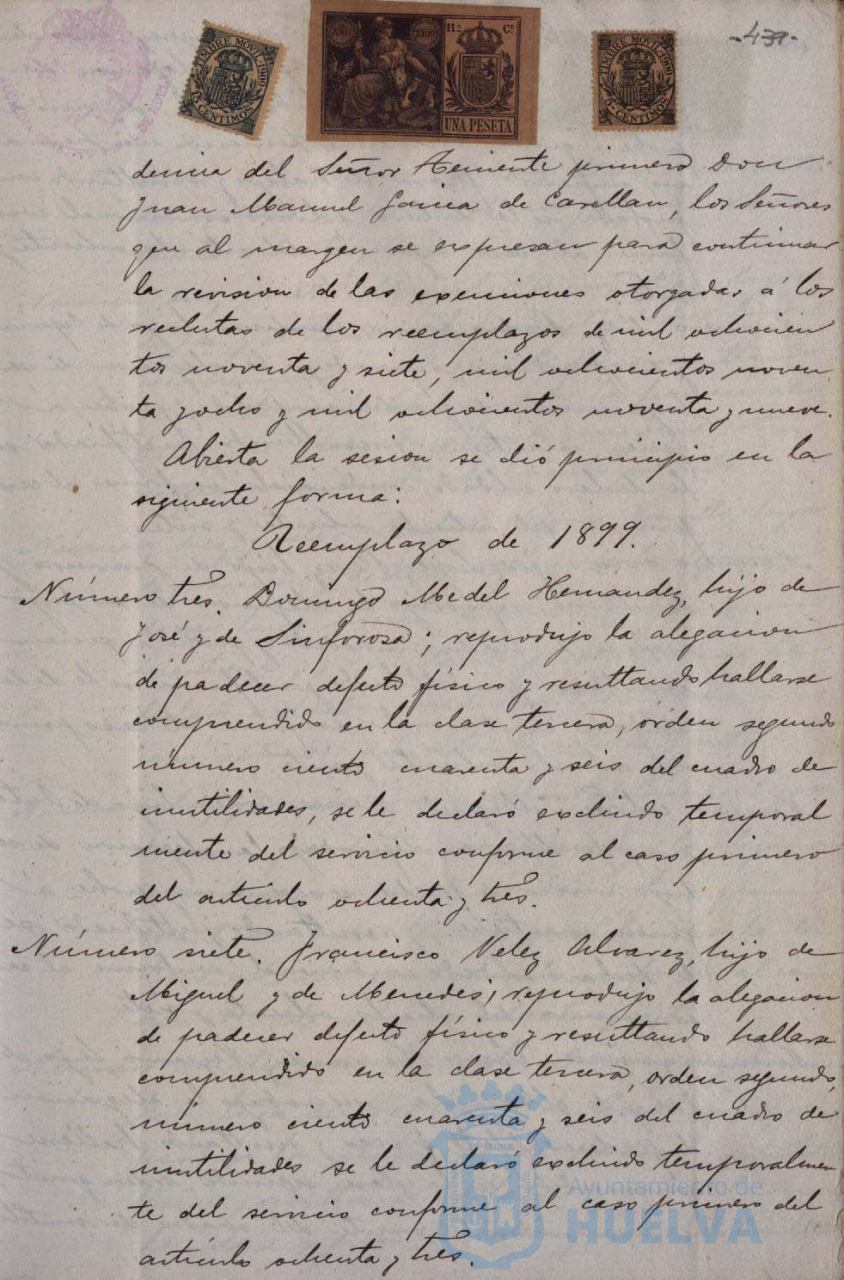 -439-
TIMBRE MOVIL 1900
5 CENTIMOS
AÑO 1900
11ª Cª
UNA PESETA
TIMBRE MOVIL 1900
5 CENTIMOS
dencia del Señor Teniente primero Don
Juan Manuel Garcia de Carellan, los Señores
que al margen se expresan para continuar
la revision de las exenciones otorgadas á los
reclutas de los reemplazos de mil ochocien
tos noventa y siete, mil ochocientos noven
ta y ocho y mil ochocientos noventa y nueve.
Abierta la sesion se dió principio en la
siguiente forma:
Reemplazo de 1899.
Número tres. Domingo Medel Hernandez, hijo de
José y de Sinforosa; reprodujo la alegacion
de padecer defecto físico y resultando hallarse
comprendido en la clase tercera, orden segundo
número ciento cuarenta y seis del cuadro de
inutilidades, se le declaró excluido temporal
mente del servicio conforme al caso primero
del artículo ochenta y tres.
Número siete. Francisco Velez Alvarez, hijo de
Miguel y de Mercedes; reprodujo la alegacion
de padecer defecto físico y resultando hallarse
comprendido en la clase tercera, orden segundo,
número ciento cuarenta y seis del cuadro de
inutilidades se le declaró excluido temporalmen
te del servicio conforme al caso primero del
artículo ochenta y tres.
Ayuntamiento de
HUELVA